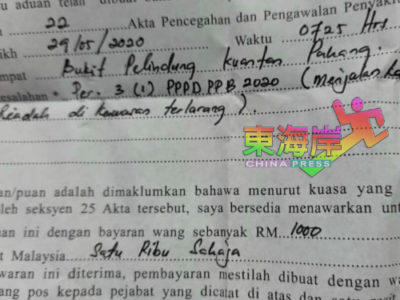 u aduan telah dibuat
22 Akta Pencegahan dan Pengawalan Penyaki
rikh 29/05/2020 Waktu 0725 Hrs
mpat Bukit Pelindung Kuantan Pahang.
esalahan Per. 3 (1) PPPD PPB 2020 (Menjalan
di kawasan terlarang).
東海岸
CHINA PRESS
an/puan adalah dimaklumkan bahawa menurut kuasa yang
leh seksyen 25 Akta tersebut, saya bersedia menawarkan untu
han ini dengan bayaran wang sebanyak RM. 1000
t Malaysia Satu Ribu Sahaja
waran ini diterima, pembayaran mestilah dibuat dengan wa
ang pos kepada pejabat yang dicatat di atas dan